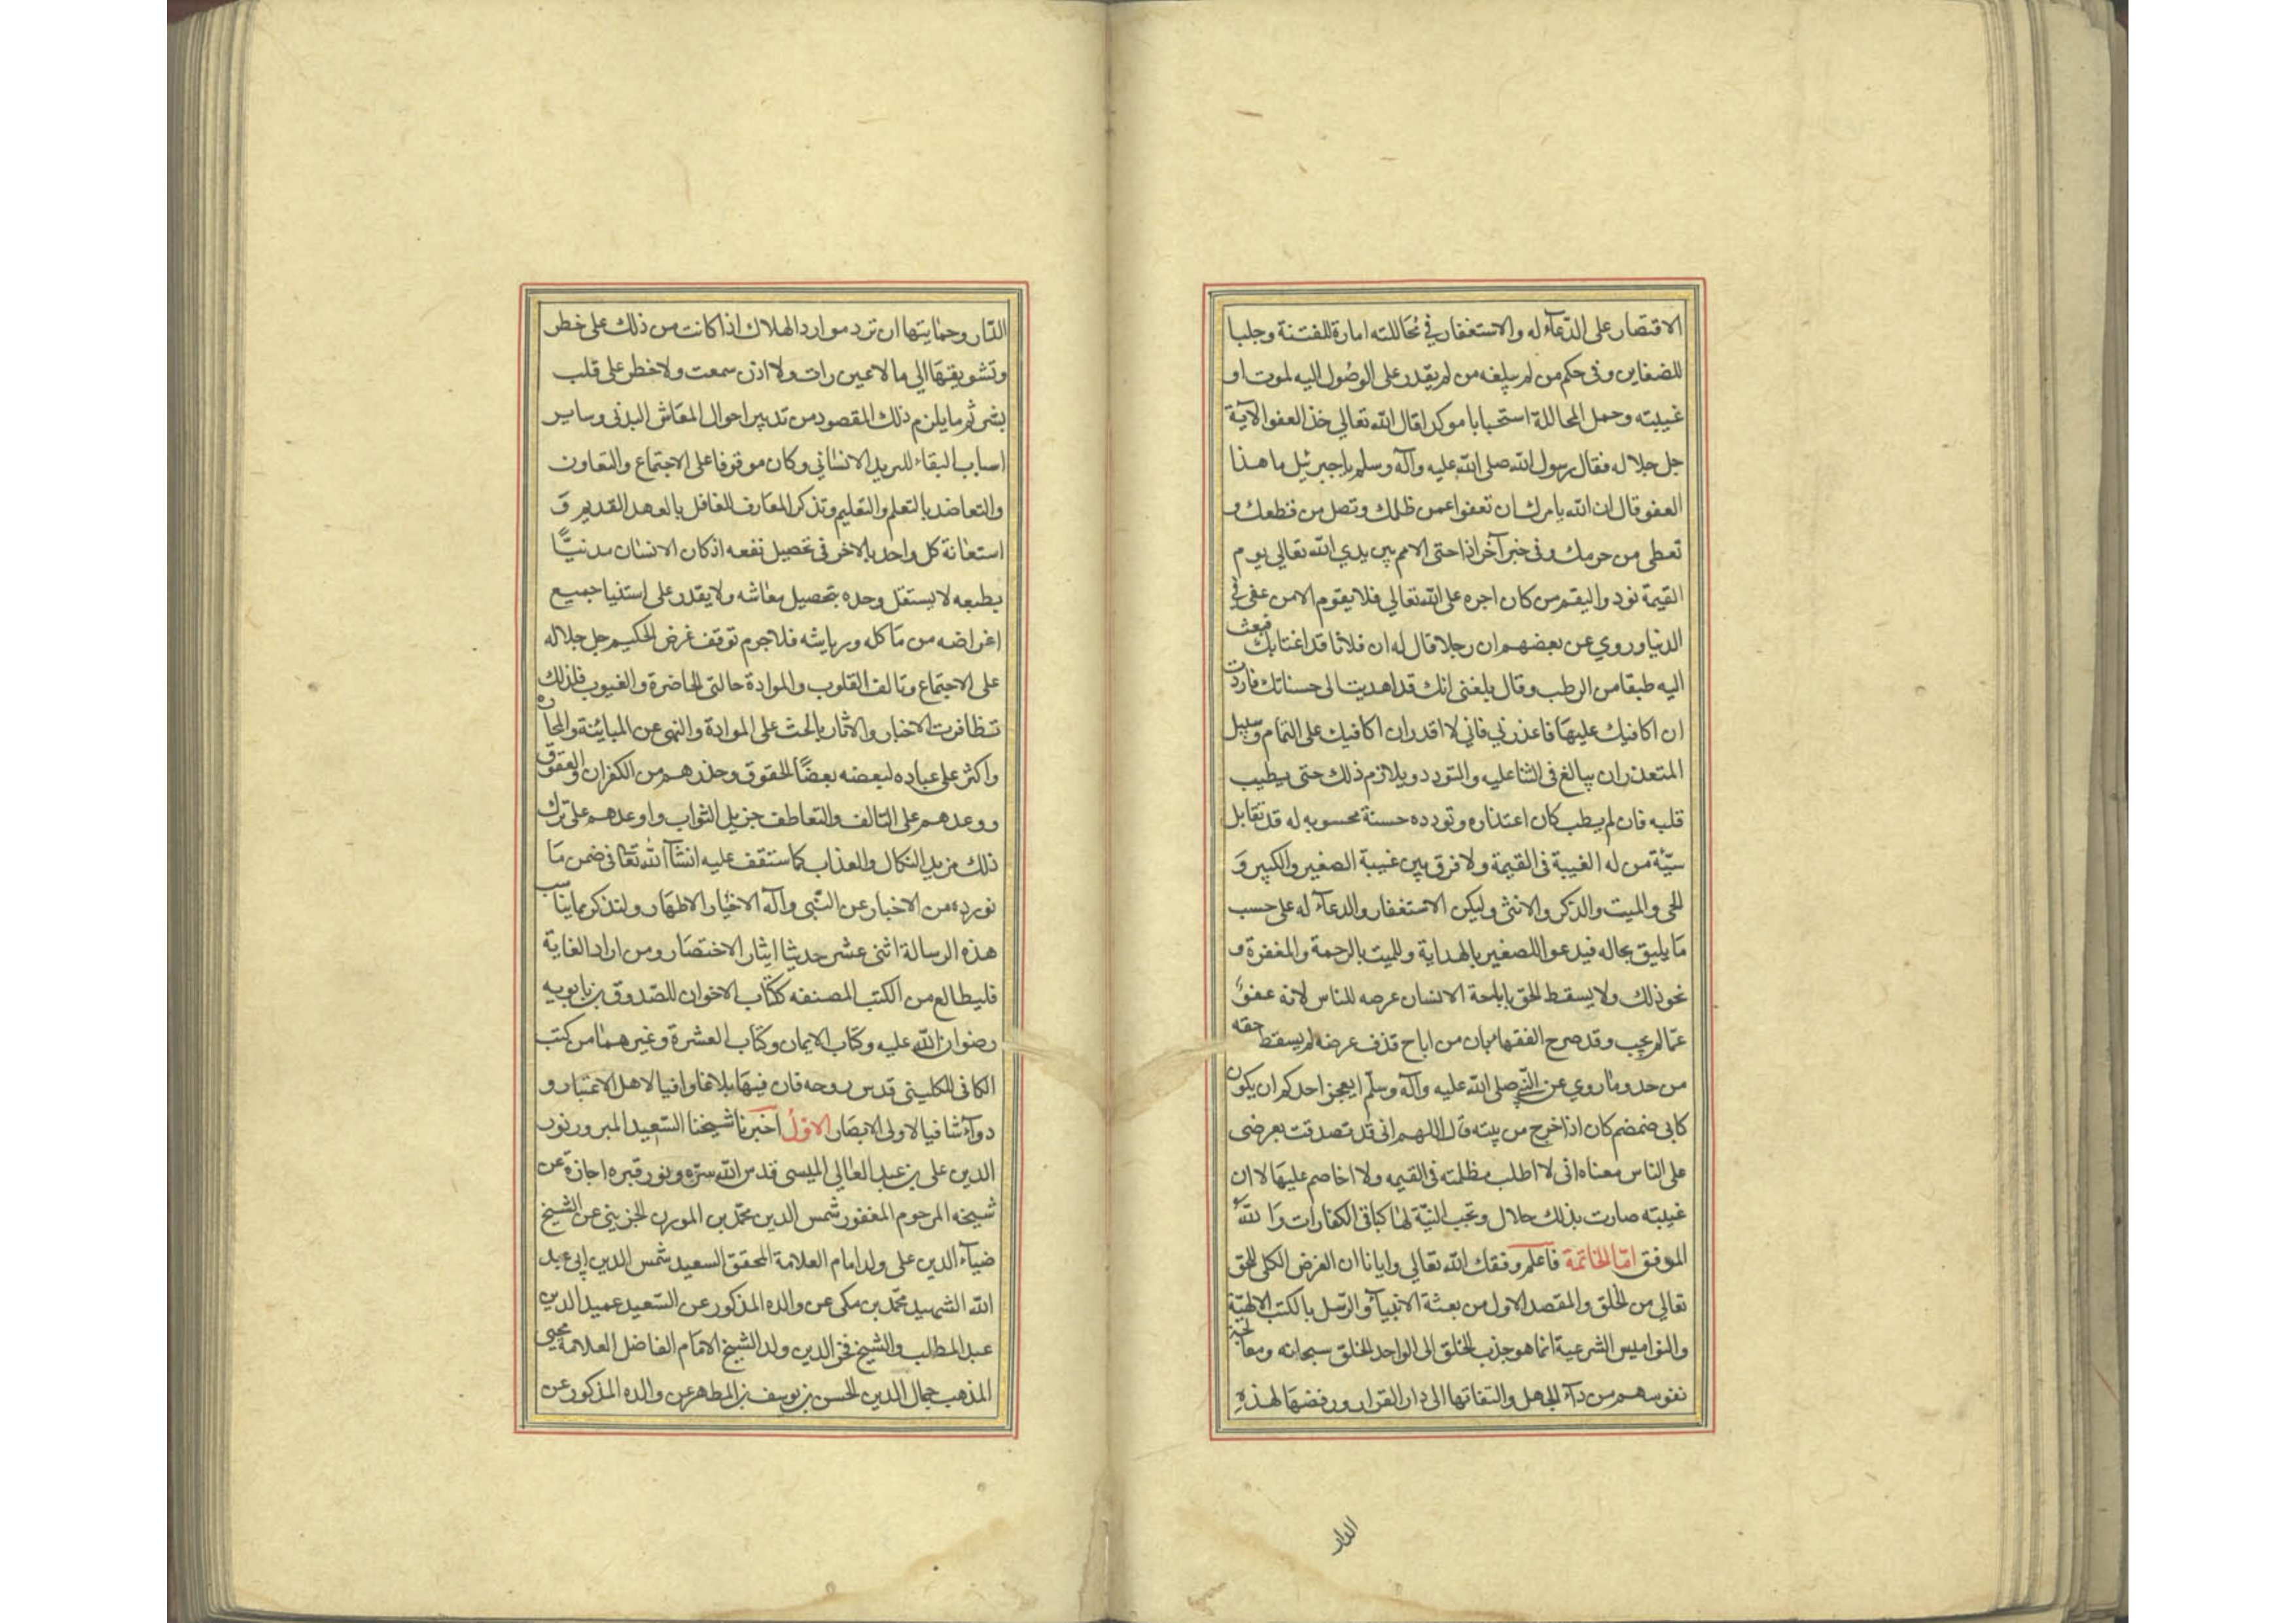 الاقتصار على الدّعآء له والاستغفار في مُحَاللته امارة للفتنة وجلبا
للضغاين وفى حكم من لم يبلغه من لم يقدر على الوصُول اليه لموت او
غيبته وحمل المحاللة استحبابا موكدا قال الله تعالي خذ العفو الآية
جل جلاله فقال رسول الله صلى الله عليه وآله وسلم يا جبرئيل ما هذا
العفو قال ان الله يامرك ان تعفوا عمن ظلمك وتصل من قطعك و
تعطى من حرمك وفى خبر آخر اذا حتى الامم بين يدي الله تعالي يوم
القيمة نودوا ليقم من كان اجره على الله تعالي فلا يقوم الا من عفى في
الدنيا وروي عن بعضهم ان رجلا قال له ان فلانا قد اغتابك فبعث
اليه طبقا من الرطب وقال بلغنى انك قد اهديت الى حسناتك فاردت
ان اكافيك عليهَا فاعذرني فاني لا اقدر ان اكافيك على التمام وسبيل
المتعذر ان يبالغ فى الثنا عليه والتودد ويلازم ذلك حتى يطيب
قلبه فان لم يطب كان اعتذاره وتودده حسنة محسوبه له قد تقابل
سيّئة من له الغيبة فى القيمة ولا فرق بين غيبة الصغير والكبير وَ
الحى والميت والذكر والانثى وليكن الاستغفار والدعآء له على حسب
مَا يليق بحاله فيدعوا للصغير بالهداية وللميت بالرحمة والمغفرة و
نحو ذلك ولا يسقط الحق باباحة الانسان عرضه للناس لانه عفوٌ
عمّا لم يجب وقد صرح الفقهاء بان من اباح قذف عرضه لم يسقط حقه
من حد وما روي عن النّبي صلى الله عليه وآله وسلّم ايعجز احدكم ان يكون
كابى ضمضم كان اذا خرج من بيته قال اللهم انى قد تصدقت بعرضى
على الناس معناه انى لا اطلب مظلمته فى القيمه ولا اخاصم عليهَا لا ان
غيبته صارت بذلك حلال وتجب النيّة لها كباقى الكفارات وَاللهُ
الموفق امّا الخاتمة فاعلم وفقك الله تعالي وايانا ان الغرض الكلى للحق
تعالي من الخلق والمقصد الاول من بعثة الانبيآء والرّسل بالكتب الالهيّة
والنواميس الشرعية انما هو جذب الخلق الى الواحد الخلق سبحانه ومعالجة
نفوسهم من دآء الجهل والتفاتها الى دار القرار ورفضهَا لهذهِ
الدار
الدّار وحمايتها ان ترد موارد الهلاك اذا كانت من ذلك على خطر
وتشويقِهَا الي ما لا عين رات ولا اذن سمعت ولا خطر على قلب
بشر ثم ما يلزم ذلك المقصود من تدبير احوال المعَاش البدنى وساير
اسباب البقاء للبريد الانسَاني وكان موقوفا على الاجتماع والتعاون
والتعاضد بالتعلم والتعليم وتذكر المعَارف للغافل بالعهد القديم وَ
استعانة كل واحد بالاخر فى تحصيل نفعه اذ كان الانسان مدنيًّا
بطبعه لا يستقل وحده بتحصيل معاشه ولا يقدر على استنيا جميع
اغراضه من مَاكله ورياشه فلا جرم توقف غرض الحكيم جل جلاله
على الاجتماع وتالف القلوب والموادة حالتى الحاضرة والغيوب فلذلك
تظافرت الاخبار والاثار بالحث على الموادة والنهى عن المباينة والمحاره
واكثر على عباده لبعضه بعضًا الحقوق وحذرهم من الكفران والعقوق
ووعدهم على التالف والتعاطف جزيل الثواب واوعدهم على ترك
ذلك مزيد النكال والعذاب كما ستقف عليه انشآء الله تعَالى فى ضمن مَا
نورده من الاخبار عن النّبى وآله الاخيار الاطهَار ولنذكر مما يناسب
هذه الرسالة اثنى عشر حديثا ايثار الاختصَار ومن اراد الغاية
فليطالع من الكتب المصنفه ككتَاب الاخوان للصّدوق بن بابويه
رضوان الله عليه وكتاب الايمان وكتاب العشرة وغيرهما من كتب
الكافى للكلينى قدس روحه فان فيهَا بلاغا وافيا لاهل الاعتبار و
دوآء شافيا لاولى الابصَار الاوّل اخبرنا شيخنا السّعيد المبرور نور
الدين على بن عبد العالي الميسى قدس الله سرّه ونور قبره اجازة عن
شيخه المرحوم المغفور شمس الدين محمّد بن الموذن الجزينى عن الشيخ
ضيآء الدين على ولد امام العلامة المحقق السعيد شمس الدين ابى عبد
الله الشهيد محمّد بن مكى عن والده المذكور عن السّعيد عميد الدين
عبد المطلب والشيخ فخر الدين ولد الشيخ الامَام الفاضل العلامة محيى
المذهب جمال الدين الحسن بن يوسف بن المطهر عن والده المذكور عن